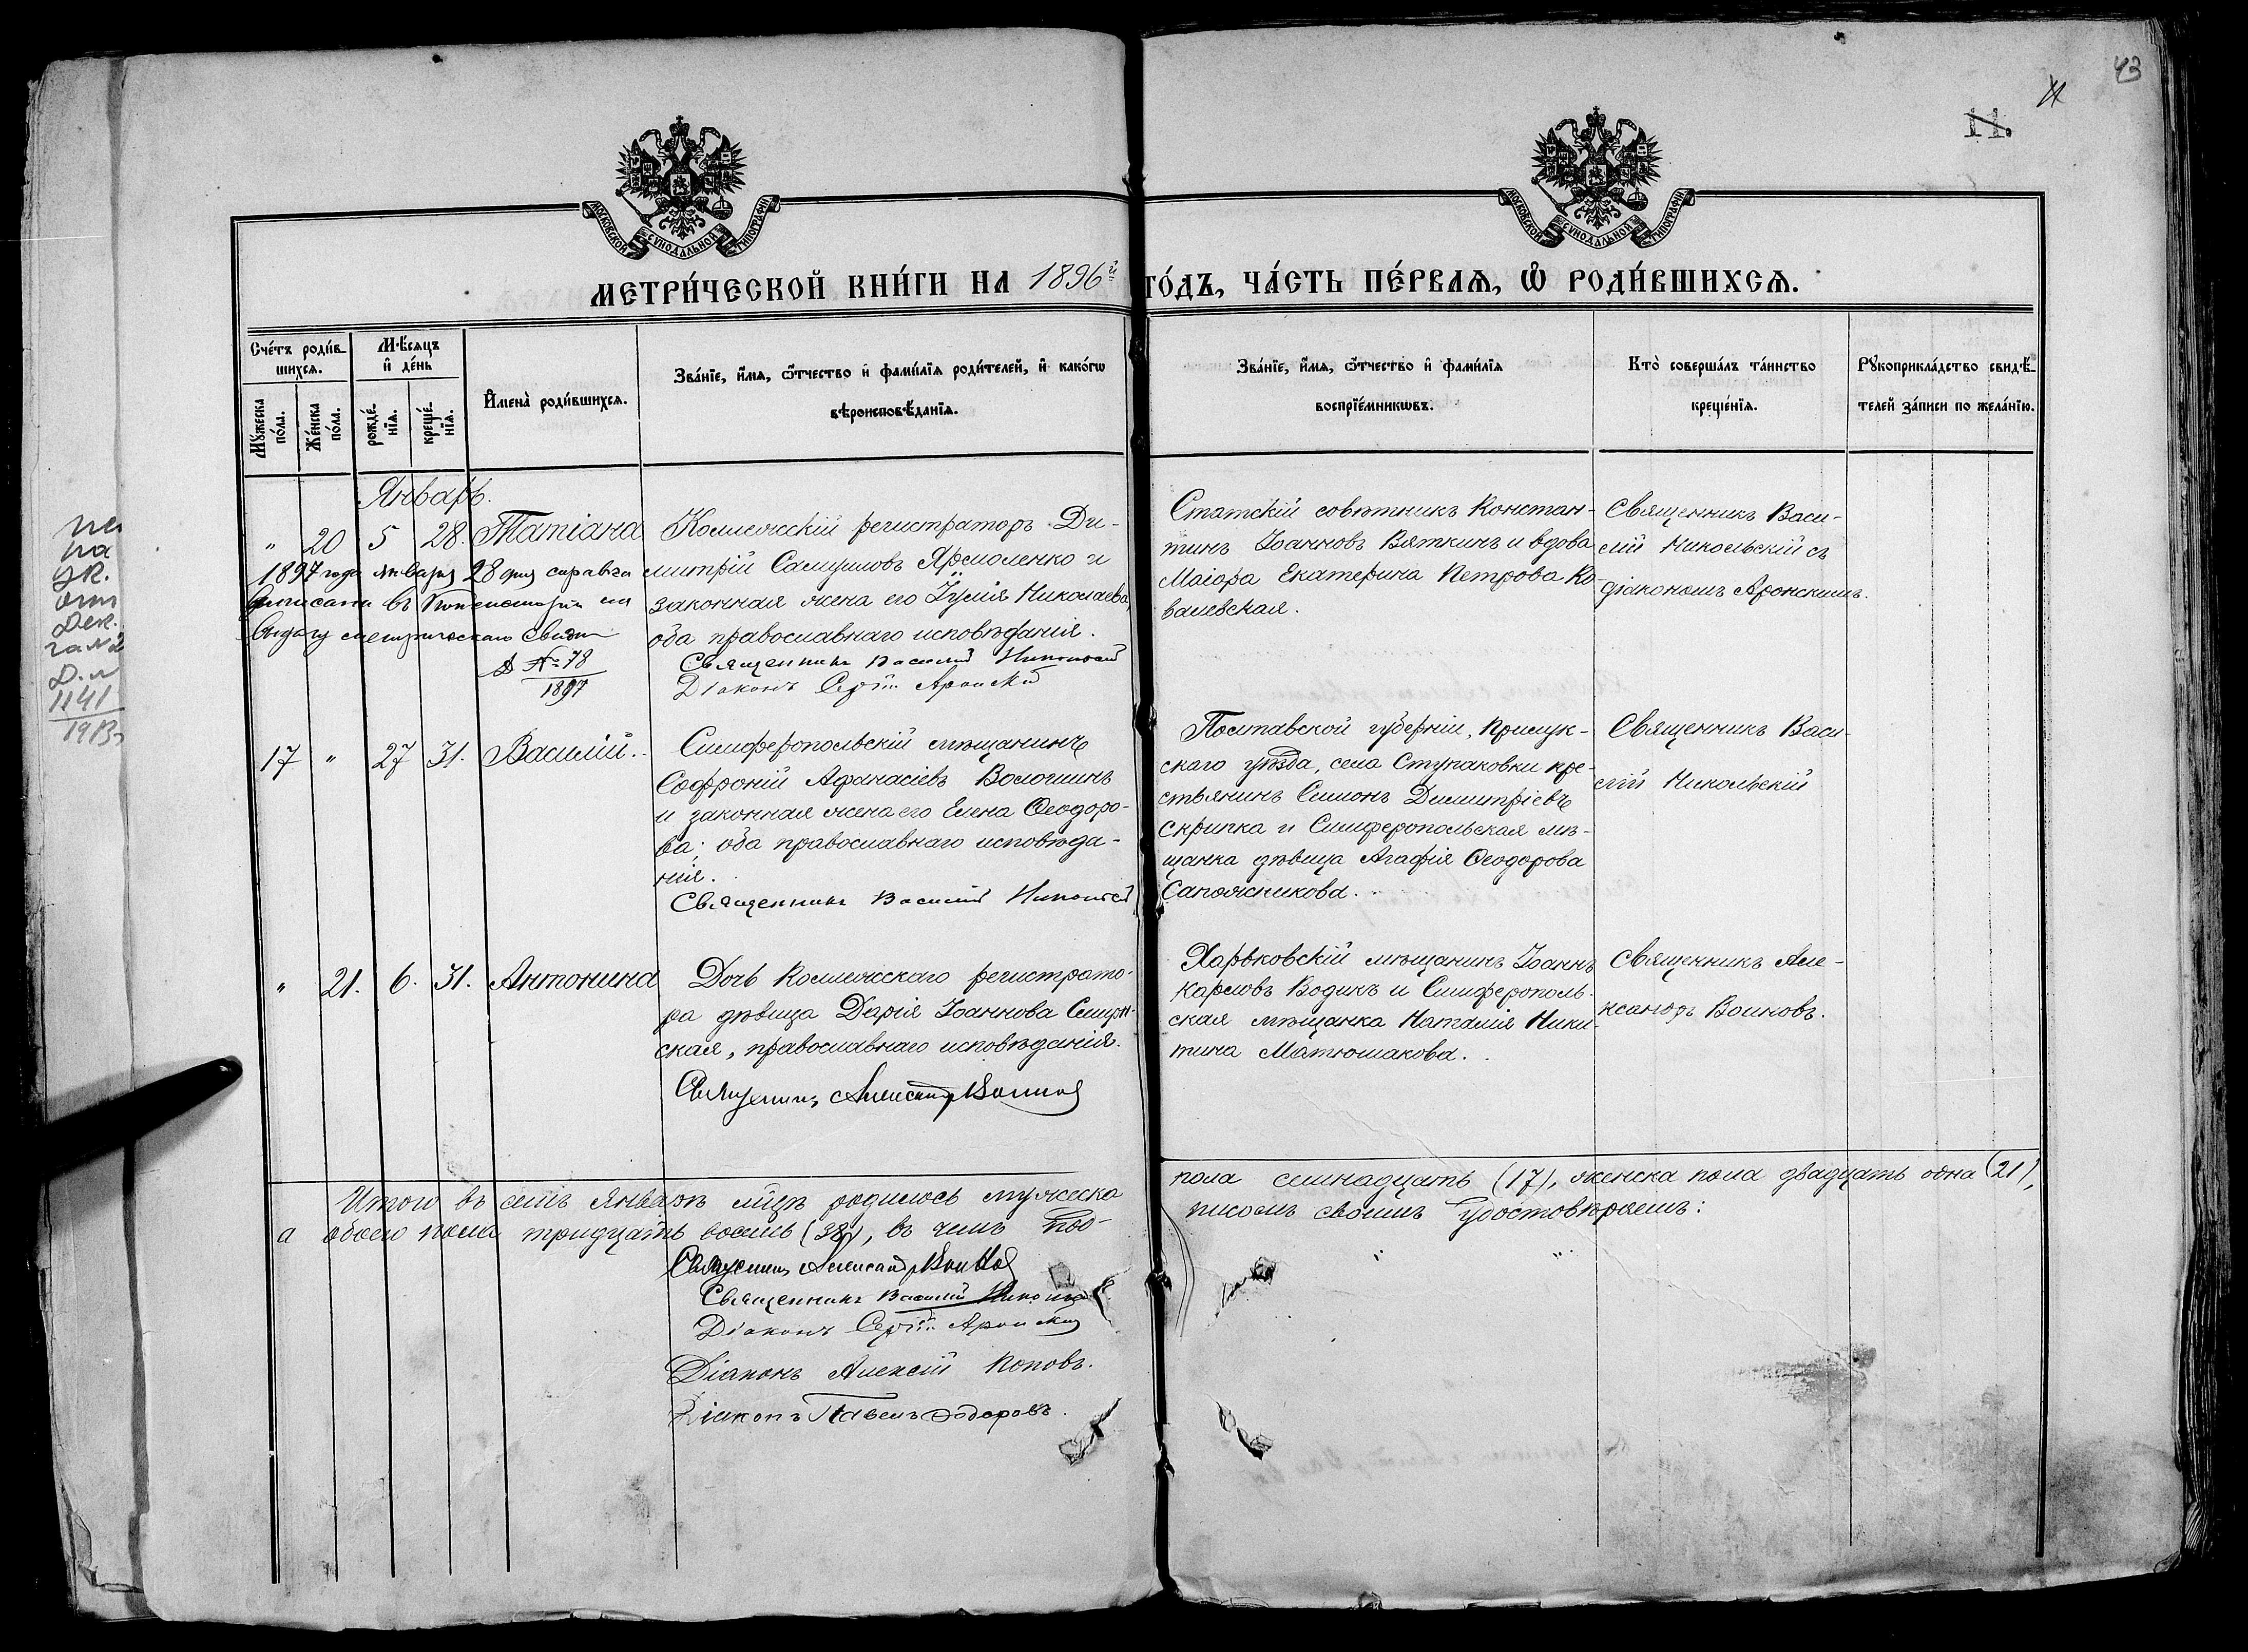 43
11.
МОСКОВСКОЙ СѴНОДАЛЬНОЙ ТИПОГРАФІИ
МОСКОВСКОЙ СѴНОДАЛЬНОЙ ТИПОГРАФІИ
МЕТРИ́ЧЕСКОЙ КНИ́ГИ НА 1896й ГО́ДЪ, ЧА́СТЬ ПЕ́РВАѦ, Ѡ҆ РОДИ́ВШИХСѦ.
Сче́тъ роди́в-
шихсѧ.
Мꙋ́жеска по́ла.
Же́нска по́ла.
Мѣ́сѧцъ
и҆ де́нь
рожде́-
нїѧ.
креще́-
нїѧ.
И҆мена̀ роди́вшихсѧ.
Зва́нїе, и҆́мѧ, ѻ҆́тчество и҆ фами́лїѧ роди́телей, и҆ како́гѡ
вѣроисповѣ́данїѧ.
Зва́нїе, и҆́мѧ, ѻ҆́тчество и҆ фами́лїѧ
воспрїе́мникѡвъ.
Кто̀ соверша́лъ та́инство
креще́нїѧ.
Рꙋкоприкла́дство свидѣ́-
телей за́писи по жела́нїю.
Январь.
" 20 5 28. Татіана
Коллежскій регистраторъ Ди-
митрій Самуиловъ Ярмоленко и
законная жена его Іулія Николаева
оба православнаго исповѣданія.
Священникъ Василій Никольскій
Діаконъ Сергій Аронскій
1897 года января 28 дня справка
выписана въ Консисторіи на
выдачу метрическаго свидѣт
Д №78
1897
Статскій совѣтникъ Констан-
тинъ Іоанновъ Вяткинъ и вдова
Маіора Екатерина Петрова Ко-
валевская.
Священникъ Васи-
лій Никольскій съ
діакономъ Аронскимъ.
17 " 27 31. Василій.
Симферопольскій мѣщанинъ
Софроній Афанасіевъ Волошинъ
и законная жена его Елена Ѳеодоро-
ва; оба православнаго исповѣда-
нія.
Священникъ Василій Никольскій
Полтавской губерніи, Прилук-
скаго уѣзда, села Ступаковки кре-
стьянинъ Симонъ Димитріевъ
Скрипка и Симферопольская мѣ-
щанка дѣвица Агафія Ѳеодорова
Сапожникова.
Священникъ Васи-
лій Никольскій
" 21. 6. 31. Антонина
Дочь Коллежскаго регистрато-
ра дѣвица Дарія Іоаннова
ская, православнаго исповѣданія.
Священникъ Александръ Воиновъ
Харьковскій мѣщанинъ Іоаннъ
Карловъ Водикъ и Симферополь-
ская мѣщанка Наталія Ники-
тина Матюшакова.
Священникъ Але-
ксандръ Воиновъ.
Итого въ семъ Январѣ м-цѣ родилось мужеска пола семнадцать (17), женска пола двадцать одна (21),
а обоего пола тридцать восемь (38), въ чемъ под- писомъ своимъ удостовѣряемъ:
Священникъ Александръ Воиновъ
Священникъ Василій Никольскій
Діаконъ Сергій Аронскій
Діаконъ Алексій Поповъ.
Діаконъ Павелъ Ѳедоровъ.
на
ук.
Дек.
1141
1913